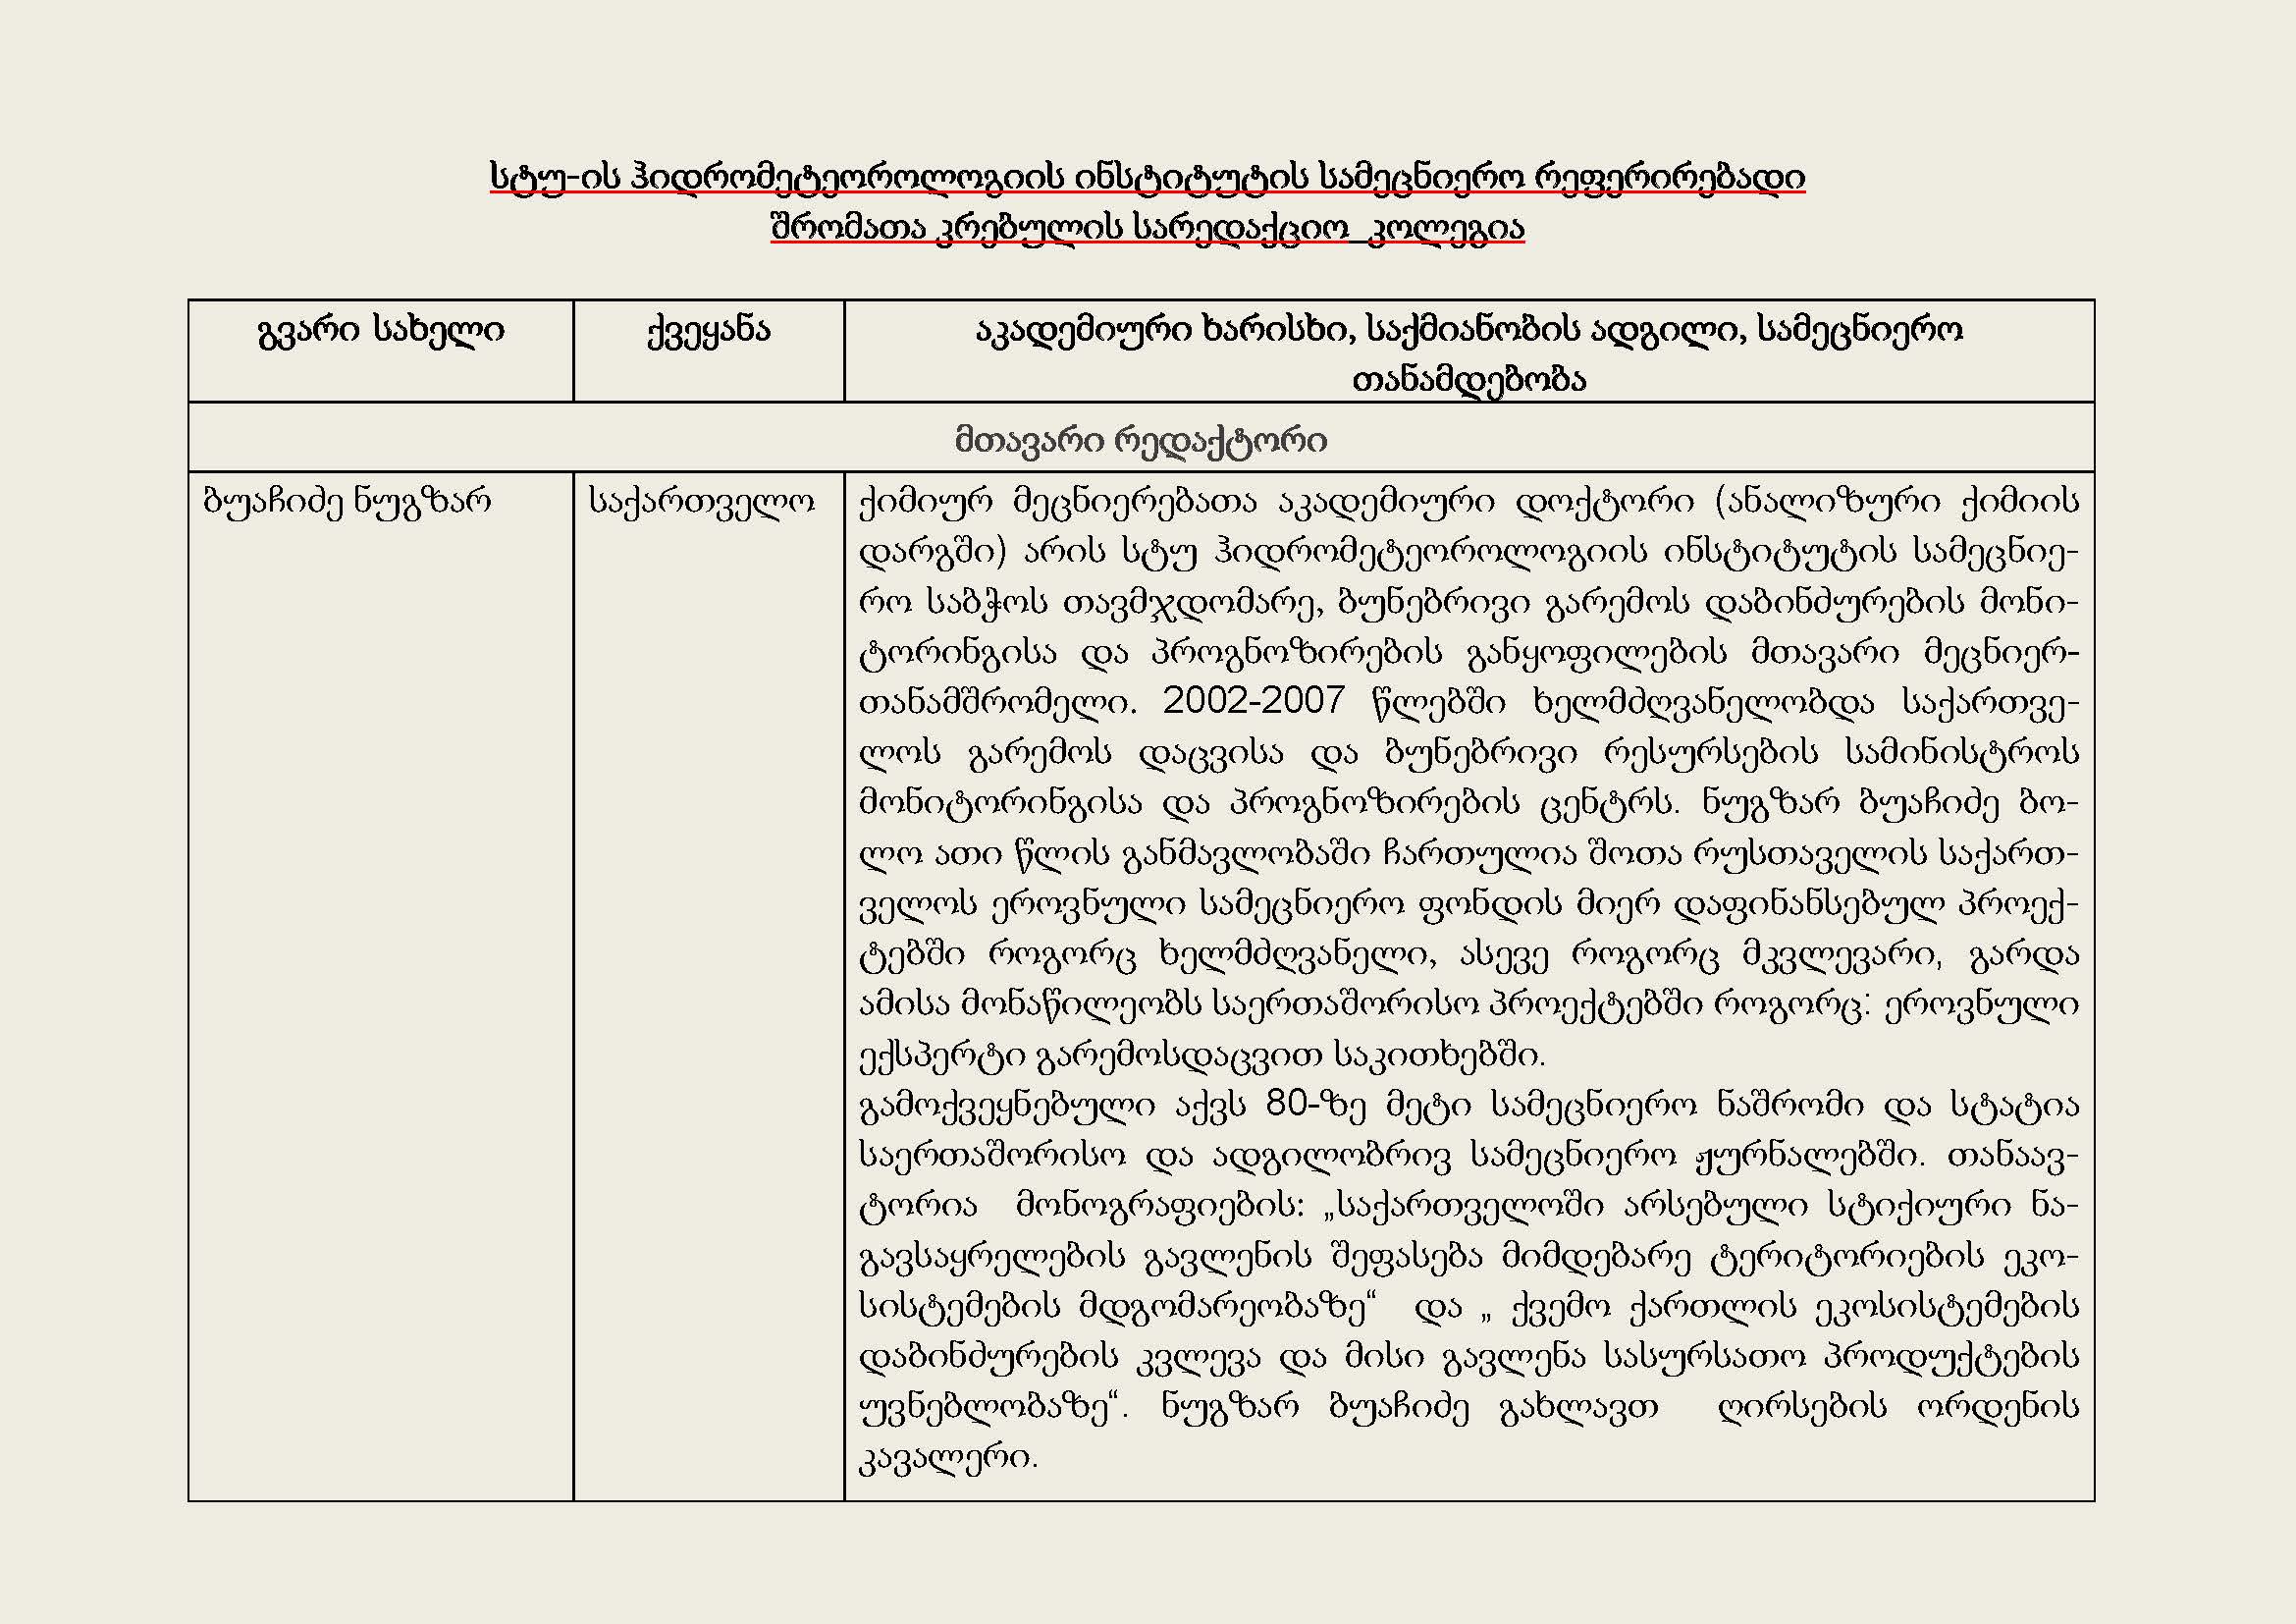 სტუ-ის ჰიდრომეტეოროლოგიის ინსტიტუტის სამეცნიერო რეფერირებადი
შრომათა კრებულის სარედაქციო კოლეგია
გვარი სახელი
ქვეყანა
აკადემიური ხარისხი, საქმიანობის ადგილი, სამეცნიერო
თანამდებობა
მთავარი რედაქტორი
ბუაჩიძე ნუგზარ
საქართველო
ქიმიურ მეცნიერებათა აკადემიური დოქტორი (ანალიზური ქიმიის
დარგში) არის სტუ ჰიდრომეტეოროლოგიის ინსტიტუტის სამეცნიე-
რო საბჭოს თავმჯდომარე, ბუნებრივი გარემოს დაბინძურების მონი-
ტორინგისა და პროგნოზირების განყოფილების მთავარი მეცნიერ-
თანამშრომელი. 2002-2007 წლებში ხელმძღვანელობდა საქართვე-
ლოს გარემოს დაცვისა და ბუნებრივი რესურსების სამინისტროს
მონიტორინგისა და პროგნოზირების ცენტრს. ნუგზარ ბუაჩიძე ბო-
ლო ათი წლის განმავლობაში ჩართულია შოთა რუსთაველის საქართ-
ველოს ეროვნული სამეცნიერო ფონდის მიერ დაფინანსებულ პროექ-
ტებში როგორც ხელმძღვანელი, ასევე როგორც მკვლევარი, გარდა
ამისა მონაწილეობს საერთაშორისო პროექტებში როგორც: ეროვნული
ექსპერტი გარემოსდაცვით საკითხებში.
გამოქვეყნებული აქვს 80-ზე მეტი სამეცნიერო ნაშრომი და სტატია
საერთაშორისო და ადგილობრივ სამეცნიერო ჟურნალებში. თანაავ-
ტორია მონოგრაფიების: „საქართველოში არსებული სტიქიური ნა-
გავსაყრელების გავლენის შეფასება მიმდებარე ტერიტორიების ეკო-
სისტემების მდგომარეობაზე“ და „ ქვემო ქართლის ეკოსისტემების
დაბინძურების კვლევა და მისი გავლენა სასურსათო პროდუქტების
უვნებლობაზე“. ნუგზარ ბუაჩიძე გახლავთ ღირსების ორდენის
კავალერი.